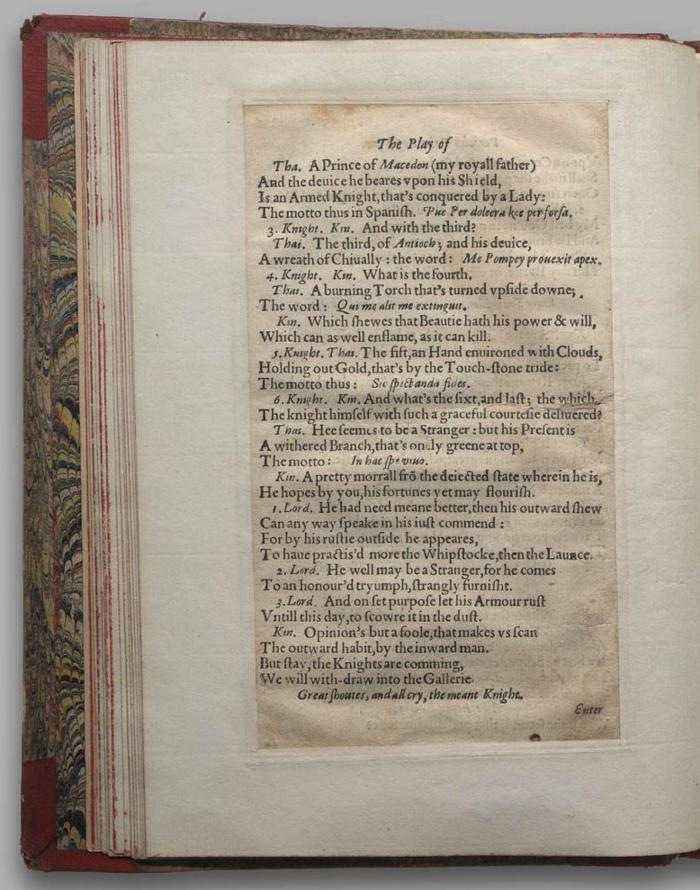 The Play of
Tha. A Prince of Macedon (my royall father)
And the deuice he beares vpon his Shield,
Is an Armed Knight, that's conquered by a Lady:
The motto thus in Spaniſh. Pue Per doleera kee per forſa.
3. Knight. Kin. And with the third?
Thai. The third, of Antioch; and his deuice,
A wreath of Chiually: the word: Me Pompey prouexit apex.
4. Knight. Kin. What is the fourth.
Thai. A burning Torch that's turned vpſide downe;
The word: Qui me alit me extinguit.
Kin. Which ſhewes that Beautie hath his power & will,
Which can as well enflame, as it can kill.
5. Knight. Thai. The fift, an Hand enuironed with Clouds,
Holding out Gold, that's by the Touch-ſtone tride:
The motto thus: Sic ſpectanda fides.
6. Knight. Kin. And what's the ſixt, and laſt; the which,
The knight himſelf with ſuch a graceful courteſie deliuered?
Thai. Hee ſeemes to be a Stranger: but his Preſent is
A withered Branch, that's only greene at top,
The motto: In hac ſpe viuo.
Kin. A pretty morrall frõ the deiected ſtate wherein he is,
He hopes by you, his fortunes yet may flouriſh.
1. Lord. He had need meane better, then his outward ſhew
Can any way ſpeake in his iuſt commend:
For by his ruſtie outſide he appeares,
To haue practis'd more the Whipſtocke, then the Launce.
2. Lord. He well may be a Stranger, for he comes
To an honour'd tryumph, ſtrangly furniſht.
3. Lord. And on ſet purpoſe let his Armour ruſt
Vntill this day, to ſcowre it in the duſt.
Kin. Opinion's but a foole, that makes vs ſcan
The outward habit, by the inward man.
But ſtay, the Knights are comming,
We will with-draw into the Gallerie.
Great ſhoutes, and all cry, the meane Knight.
Enter